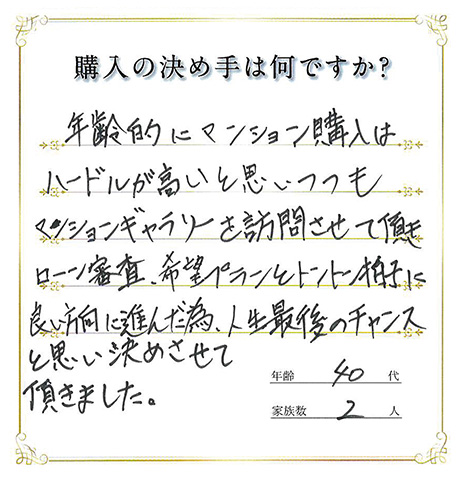 購入の決め手は何ですか?
年齢的にマンション購入は
ハードルが高いと思いつつも
マンションギャラリーを訪問させて頂き
ローン審査、希望プランとトントン拍子に
良い方向に進んだ為、人生最後のチャンス
と思い決めさせて
頂きました。
年齢 40 代
家族数 2 人